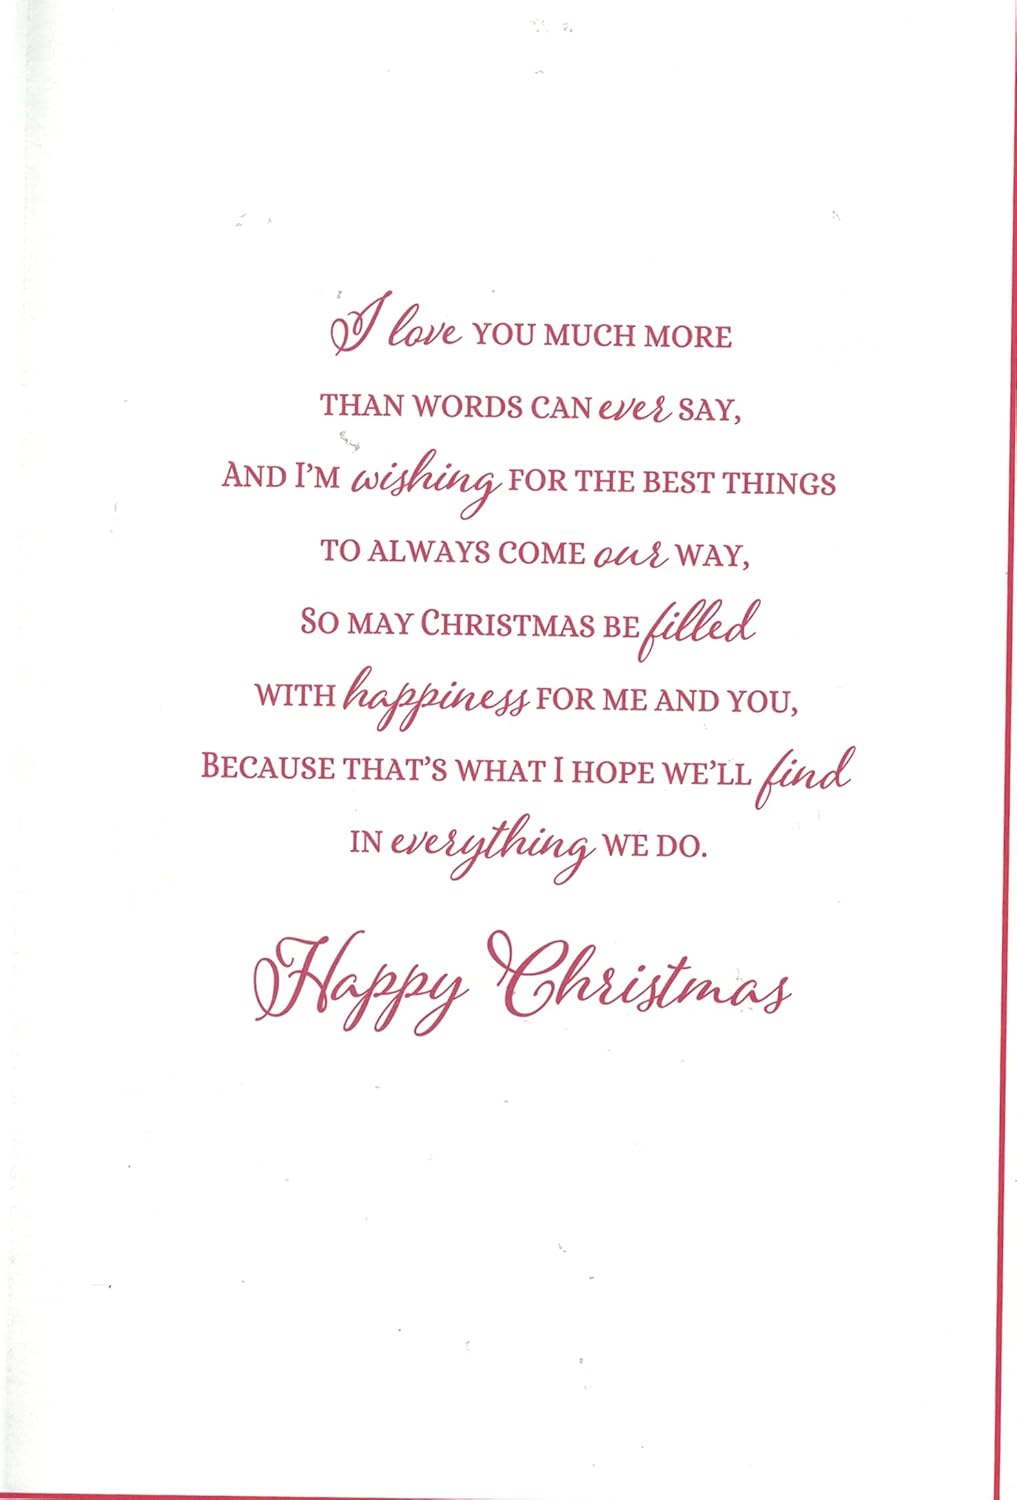 I love YOU MUCH MORE
THAN WORDS CAN ever SAY,
AND I'M wishing FOR THE BEST THINGS
TO ALWAYS COME our WAY,
SO MAY CHRISTMAS BE filled
WITH happiness FOR ME AND YOU,
BECAUSE THAT'S WHAT I HOPE WE'LL find
IN everything WE DO.
Happy Christmas